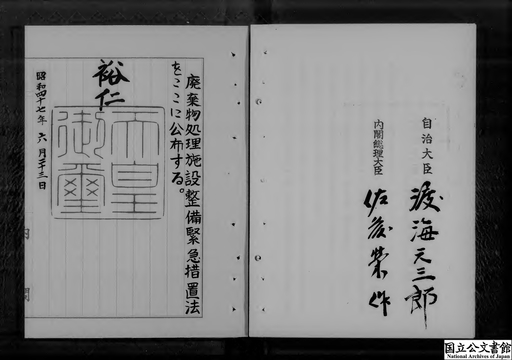 廃棄物処理施設整備緊急措置法
をここに公布する。
裕仁
天皇
御璽
昭和四十七年六月二十三日
内閣
自治大臣 渡海元三郎
内閣総理大臣 佐藤榮作
国立公文書館
National Archives of Japan